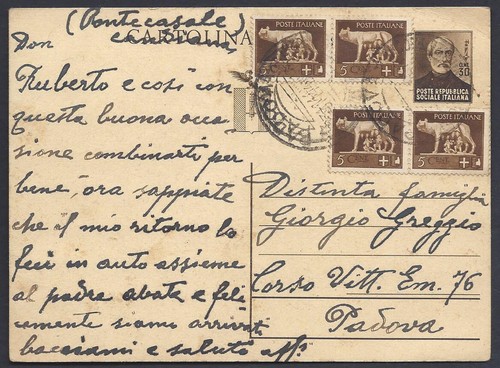 (Pontecasale)
Candiana
CARTOLINA
Don
Ruberto e così con
questa buona occa
sione combinarti per
bene, ora sappiate
che il mio ritorno lo
feci in auto assieme
al padre abate e feli
camente siamo arrivati
bacciami e saluto aff.
POSTE ITALIANE
5 CENT
POSTE ITALIANE
5 CENT
POSTE ITALIANE
5 CENT
POSTE ITALIANE
5 CENT
CENT 30
POSTE REPUBBLICA
SOCIALE ITALIANA
Distinta famiglia
Giorgio Greggio
Corso Vitt. Em. 76
Padova